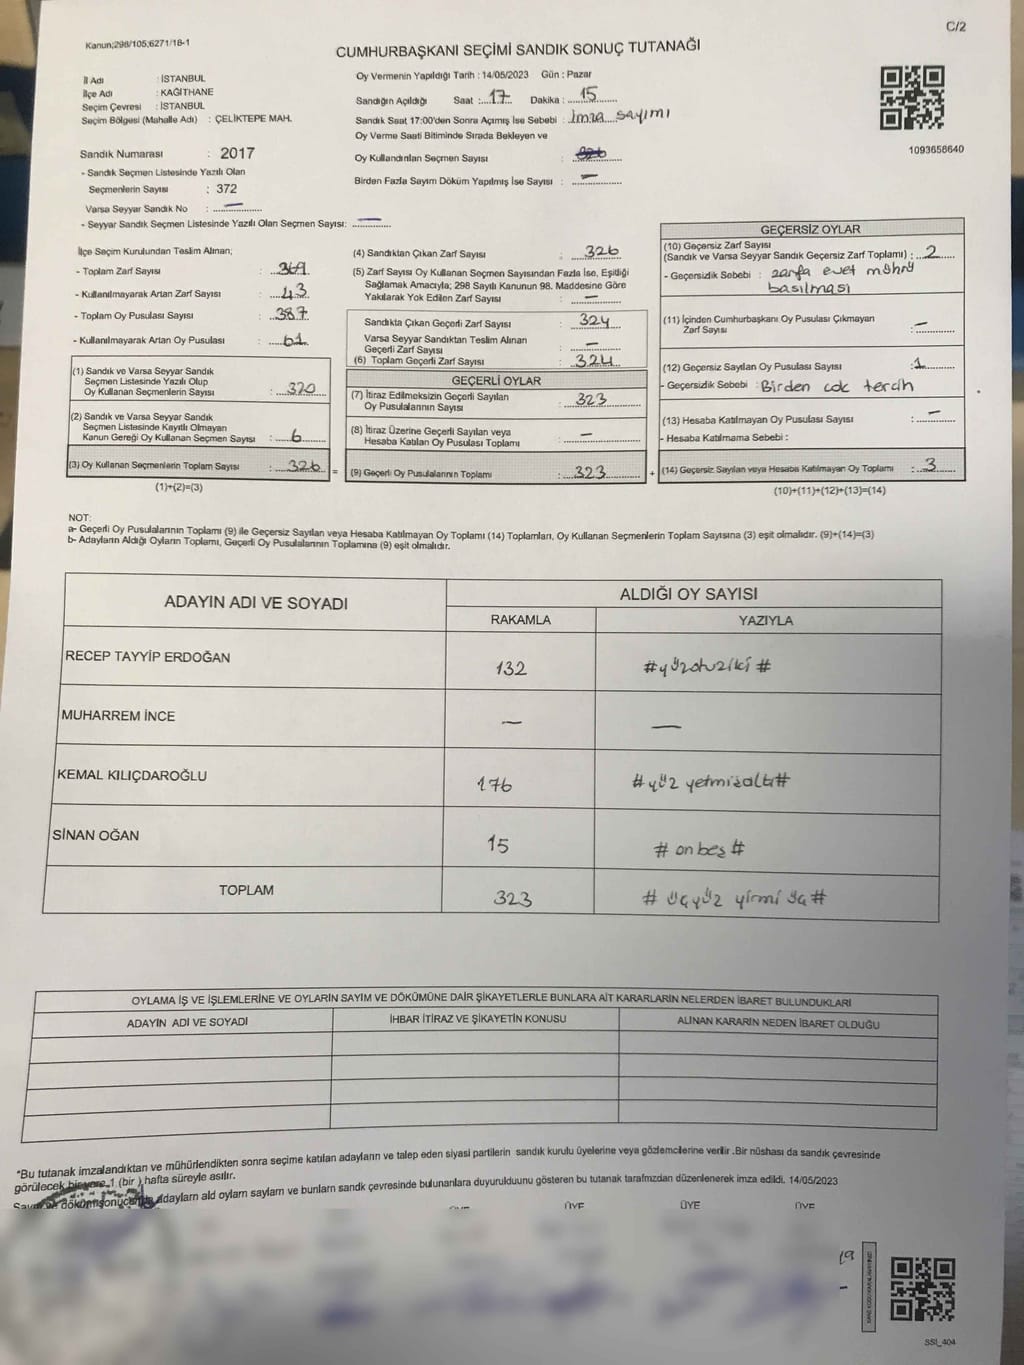 C/2
Kanun;298/105;6271/18-1
CUMHURBAŞKANI SEÇİMİ SANDIK SONUÇ TUTANAĞI
İl Adı : İSTANBUL
İlçe Adı : KAĞITHANE
Seçim Çevresi : İSTANBUL
Seçim Bölgesi (Mahalle Adı) : ÇELİKTEPE MAH.
Oy Vermenin Yapıldığı Tarih : 14/05/2023 Gün : Pazar
Sandığın Açıldığı Saat :17 Dakika :15
Sandık Saat 17:00'den Sonra Açımış İse Sebebi : İmza sayımı
Oy Verme Saati Bitiminde Sırada Bekleyen ve
Oy Kullandırılan Seçmen Sayısı :
Birden Fazla Sayım Döküm Yapılmış İse Sayısı : —
1093658640
Sandık Numarası : 2017
- Sandık Seçmen Listesinde Yazılı Olan
Seçmenlerin Sayısı : 372
Varsa Seyyar Sandık No : —
- Seyyar Sandık Seçmen Listesinde Yazılı Olan Seçmen Sayısı: —
İlçe Seçim Kurulundan Teslim Alınan;
- Toplam Zarf Sayısı : 369
- Kullanılmayarak Artan Zarf Sayısı : 43
- Toplam Oy Pusulası Sayısı : 387
- Kullanılmayarak Artan Oy Pusulası : 61
(1) Sandık ve Varsa Seyyar Sandık
Seçmen Listesinde Yazılı Olup
Oy Kullanan Seçmenlerin Sayısı : 320
(2) Sandık ve Varsa Seyyar Sandık
Seçmen Listesinde Kayıtlı Olmayan
Kanun Gereği Oy Kullanan Seçmen Sayısı : 6
(3) Oy Kullanan Seçmenlerin Toplam Sayısı : 326 =
(1)+(2)=(3)
(4) Sandıktan Çıkan Zarf Sayısı : 326
(5) Zarf Sayısı Oy Kullanan Seçmen Sayısından Fazla İse, Eşitliği
Sağlamak Amacıyla; 298 Sayılı Kanunun 98. Maddesine Göre
Yakılarak Yok Edilen Zarf Sayısı : —
Sandıkta Çıkan Geçerli Zarf Sayısı : 324
Varsa Seyyar Sandıktan Teslim Alınan
Geçerli Zarf Sayısı : —
(6) Toplam Geçerli Zarf Sayısı : 324
GEÇERLİ OYLAR
(7) İtiraz Edilmeksizin Geçerli Sayılan
Oy Pusulalarının Sayısı : 323
(8) İtiraz Üzerine Geçerli Sayılan veya
Hesaba Katılan Oy Pusulası Toplamı : —
(9) Geçerli Oy Pusulalarının Toplamı : 323 +
GEÇERSİZ OYLAR
(10) Geçersiz Zarf Sayısı
(Sandık ve Varsa Seyyar Sandık Geçersiz Zarf Toplamı) : 2
- Geçersizlik Sebebi : zarfa evet mührü
basılması
(11) İçinden Cumhurbaşkanı Oy Pusulası Çıkmayan
Zarf Sayısı : —
(12) Geçersiz Sayılan Oy Pusulası Sayısı : 1
- Geçersizlik Sebebi : Birden çok tercih
(13) Hesaba Katılmayan Oy Pusulası Sayısı : —
- Hesaba Katılmama Sebebi :
(14) Geçersiz Sayılan veya Hesaba Katılmayan Oy Toplamı : 3
(10)+(11)+(12)+(13)=(14)
NOT:
a- Geçerli Oy Pusulalarının Toplamı (9) ile Geçersiz Sayılan veya Hesaba Katılmayan Oy Toplamı (14) Toplamları, Oy Kullanan Seçmenlerin Toplam Sayısına (3) eşit olmalıdır. (9)+(14)=(3)
b- Adayların Aldığı Oyların Toplamı, Geçerli Oy Pusulalarının Toplamına (9) eşit olmalıdır.
ADAYIN ADI VE SOYADI
ALDIĞI OY SAYISI
RAKAMLA YAZIYLA
RECEP TAYYİP ERDOĞAN 132 #yüzotuziki#
MUHARREM İNCE — —
KEMAL KILIÇDAROĞLU 176 #yüz yetmişaltı#
SİNAN OĞAN 15 #onbeş#
TOPLAM 323 #üçyüz yirmi üç#
OYLAMA İŞ VE İŞLEMLERİNE VE OYLARIN SAYIM VE DÖKÜMÜNE DAİR ŞİKAYETLERLE BUNLARA AİT KARARLARIN NELERDEN İBARET BULUNDUKLARI
ADAYIN ADI VE SOYADI İHBAR İTİRAZ VE ŞİKAYETİN KONUSU ALINAN KARARIN NEDEN İBARET OLDUĞU
*Bu tutanak imzalandıktan ve mühürlendikten sonra seçime katılan adayların ve talep eden siyasi partilerin sandık kurulu üyelerine veya gözlemcilerine verilir .Bir nüshası da sandık çevresinde
görülecek bir yere 1 (bir ) hafta süreyle asılır.
adayların ald oyların sayların ve bunların sandk çevresinde bulunanlara duyurulduunu gösteren bu tutanak tarafmzdan düzenlenerek imza edildi. 14/05/2023
ÜYE ÜYE ÜYE ÜYE
19
SSI_404